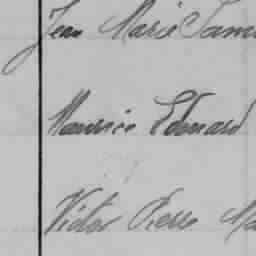 Jean Marie
Maurice Edouard
Victor Pierre Ma